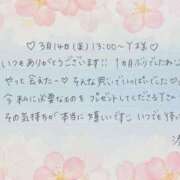 ♡3月14日(金)13:00〜Y様♡
いつもありがとうございます!! 1ヶ月ぶりでしたね♡
やっと会えた〜♡ そんな思いでいっぱいでした♡
今 私に必要なものを プレゼントしてくださるYさん
その気持ちが 本当に嬉しいです。いつもY様に